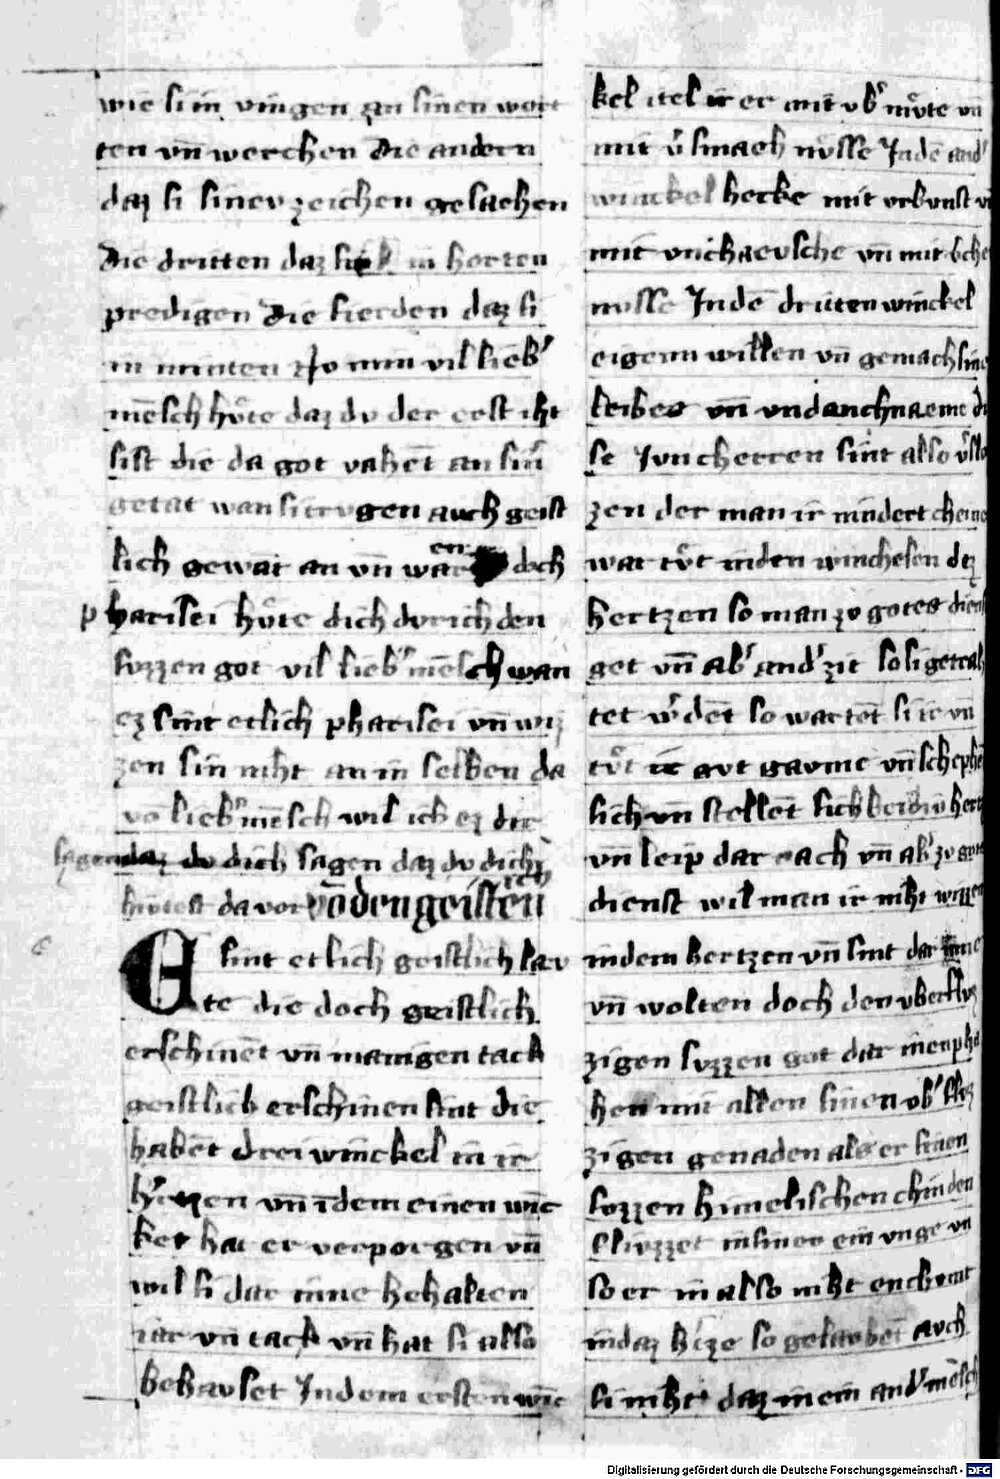 wie si in vingen an sinen wort
ten vn̄ werchen Die andern
daz si sinev zeichen gesachen
Die dritten daz in horten
predigen Die fierden daz si
in minten Nv min vil lieb'
mēsch hv̊te daz dv der erst iht
sist die da got vahēt an sin'
getat wan si trvgen auch geist
lich gewāt an vn̄ waren doch
pharisei hv̊te dich dvrich den
svzzen got vil lieb' mēsch wan
ez sint etlich pharisei vn̄ wiz
zen sin niht an in selben da
vō lieb' mēsch wil ich ez dir
sagen daz dv dich sagen daz dv dich
hvtest da vor Vō den geistleichen
Es sint etlich geistlich lev
te die doch geistlich
erschinēt vn̄ manigen tack
geistlich erschinen sint die
habēt drei winckel in ir
h'tzen vn̄ ī dem einen winc
kel hat er verporgen vn̄
wil si dar inne behalten
iar vn̄ tack vn̄ hat si also
behavset In dem ersten winc
kel itel ir er mit vb' mv̊te vn̄
mit v' smach nvsse In dē and'
winckel hecke mit vrbvnst vn̄
mit vnchaevsche vn̄ mit
nvsse In dē dritten winckel
eigenn willen vn̄ gemach sines
leibes vn̄ vndanchnaeme di
se Ivncherren sint also v'slo
zen der man ir nindert cheine
war tv̊t in den winchelen dez
hertzen so man zo gotes dienst
get vn̄ ab' and' zit so si getrah
tet w'dēt so wartēt si ir vn̄
tv̊t ir gvt gavme vn̄ schephēt
sich vn̄ stellēt sich beidiv hertz
vn̄ leip dar nach vn̄ ab' zv gotes
dienst wil man ir niht wizzen
in dem hertzen vn̄ sint dar inne
vn̄ wolten doch den vberflvz
zigen svzzen got dar in enpha
hen mit allen sinen vb' flvz
zigen genaden als er seinen
svzzen himelischen chinden
flivzzet in siner einvnge vn̄
so er in also niht enchvmt
in daz h'ze so gelavbēt avch
si niht daz in ein and' mēsch